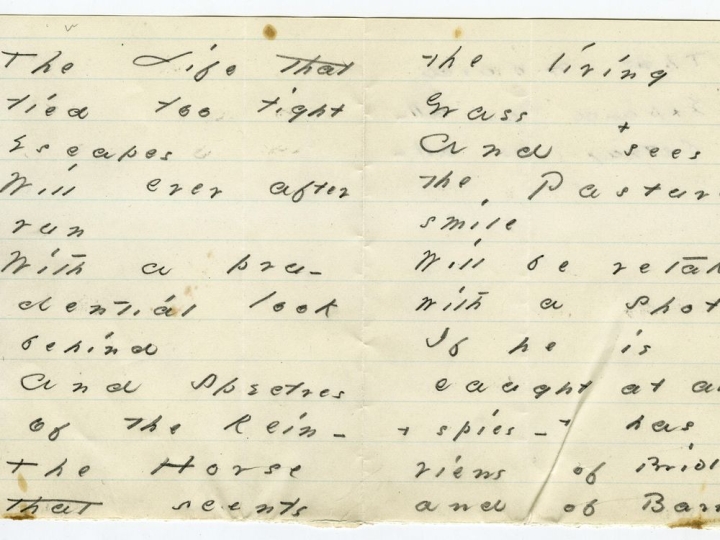 The Life That
tied too tight
Escapes
Will ever after
run
With a pru-
dential look
behind
And Spectres
of the Rein -
The Horse
that scents
the living
Grass
And + sees
the Pastur
smile
Will be retak
with a shot
If he is
caught at al
+ spies - + has
of Brid
and of Bar